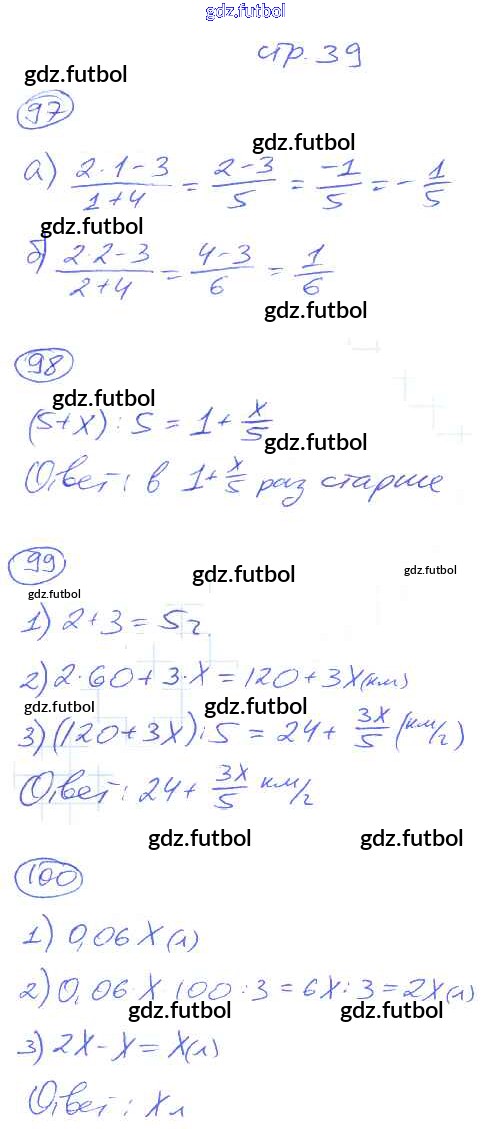 gdz.futbol
стр. 39
gdz.futbol
97
gdz.futbol
а) (2·1-3)/(1+4) = (2-3)/5 = -1/5 = -1/5
gdz.futbol
б) (2·2-3)/(2+4) = (4-3)/6 = 1/6
gdz.futbol
98
gdz.futbol
(5+x):5 = 1+x/5
gdz.futbol
Ответ: в 1+x/5 раз старше
99
gdz.futbol
gdz.futbol
gdz.futbol
1) 2+3=5ч.
2) 2·60+3·x=120+3x(км)
gdz.futbol
gdz.futbol
3) (120+3x):5=24+3x/5 (км/ч)
Ответ: 24+3x/5 км/ч
gdz.futbol
gdz.futbol
100
1) 0,06x(л)
2) 0,06·x 100:3=6x:3=2x(л)
gdz.futbol
gdz.futbol
3) 2x-x=x(л)
Ответ: x л